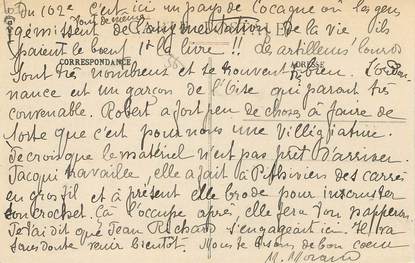 du 102e. C'est ici un pays de Cocagne où les gens
gémissent tout de même de l'augmentation de la vie ils
paient le bœuf 1f la livre !! Les artilleurs lourds
CORRESPONDANCE ADRESSE
sont très nombreux et se trouvent bien. L'ordon-
nance est un garçon de l'Oise qui paraît très
convenable. Robert a fort peu de choses à faire de
sorte que c'est pour nous une villégiature.
Je crois que le matériel n'est pas prêt d'arriver.
Jacqui travaille, elle a fait à Pithiviers des carrés
en gros fil et à présent elle brode pour incruster
son crochet. Çà l'occupe après, elle fera ton napperon
Je t'ai dit que Jean Richard s'engageait ici. Il va
sans doute venir bientôt. Nous te baisons de bon cœur
M. Morand